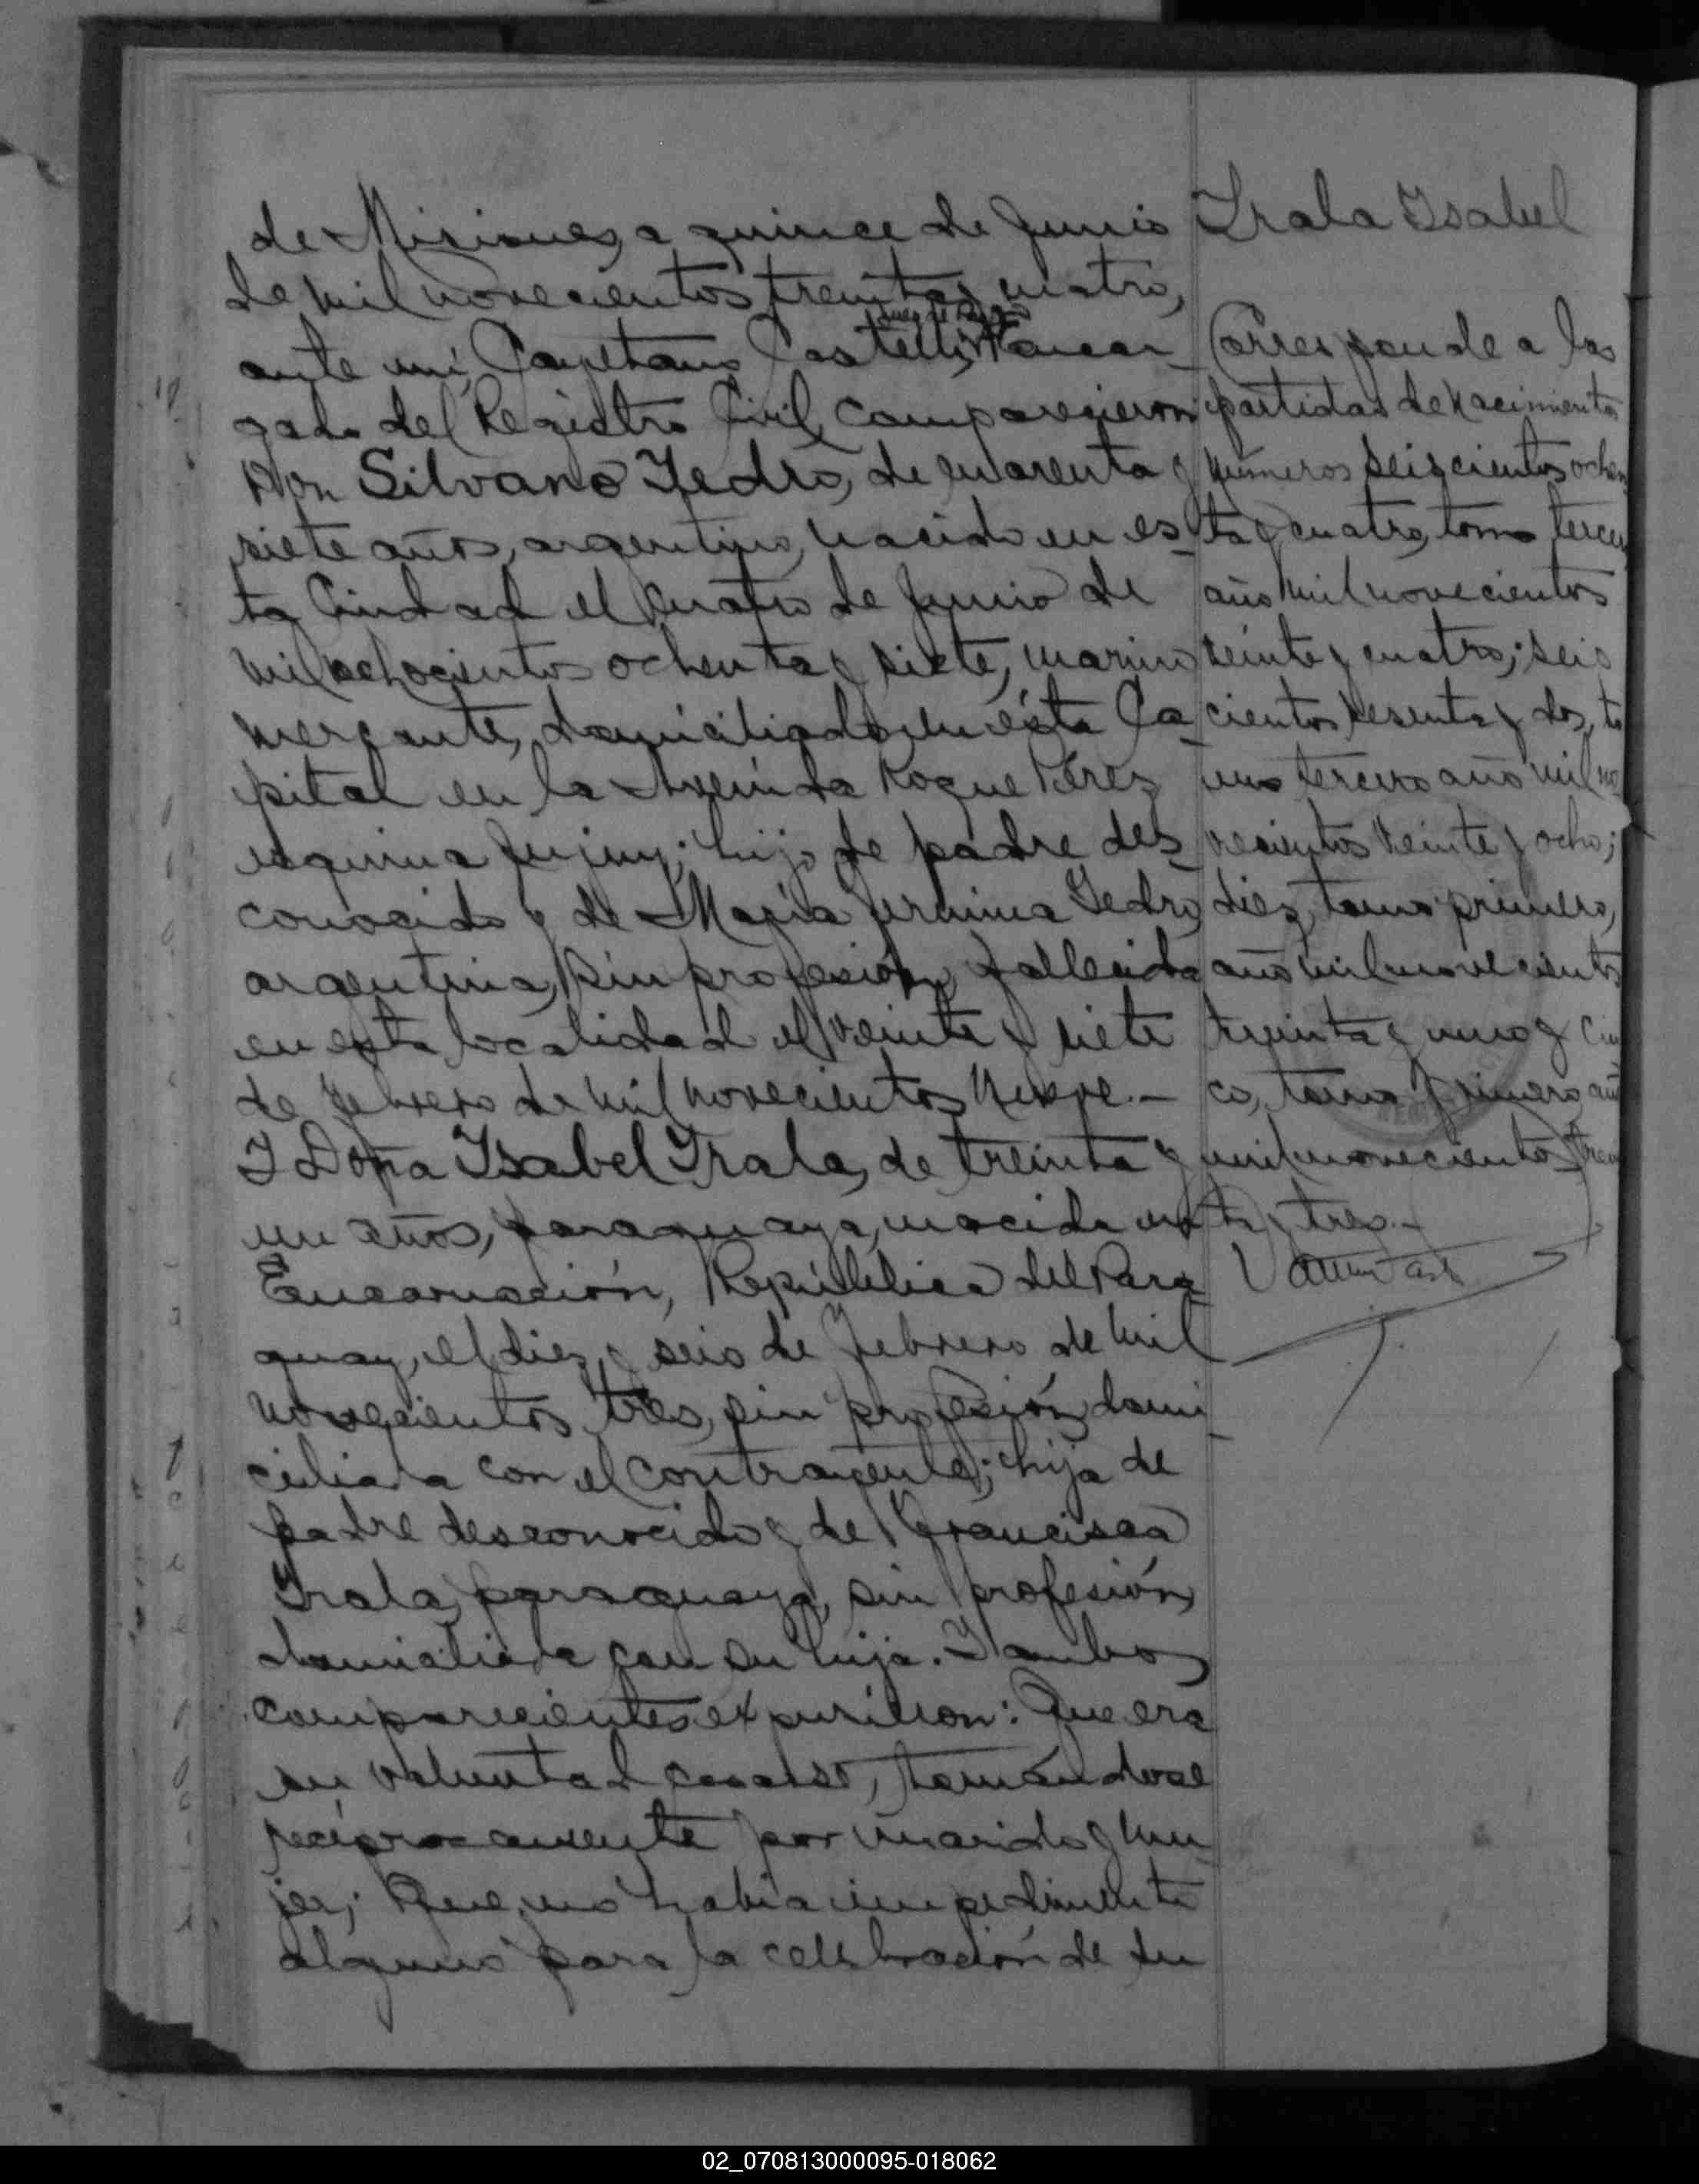 de Misiones, a quince de Junio
de mil novecientos treinta y cuatro,
Juez de Paz
ante mí, Cayetano Castelli, Encar-
gado del Registro Civil, comparecieron:
Don Silvano Yedro, de cuarenta y
siete años, argentino, nacido en es-
ta Ciudad el cuatro de Junio de
mil ochocientos ochenta y siete, marino
mercante, domiciliado en ésta Ca-
pital en la Avenida Roque Pérez
esquina Jujuy; hijo de padre des-
conocido y de María Yedro,
argentina, sin profesión, fallecida
en esta localidad el veinte y siete
de Febrero de mil novecientos nueve.-
Y Doña Ysabel Yrala, de treinta y
un años, paraguaya, nacida en
Encarnación, República del Para-
guay, el diez y seis de Febrero de mil
novecientos tres, sin profesión, domi-
ciliada con el contrayente; hija de
padre desconocido y de Francisca
Yrala, paraguaya, sin profesión,
domiciliada con su hija. Y ambos
comparecientes expusieron: Que era
su voluntad casarse, tomándose
recíprocamente por marido y mu-
jer; Que no había impedimento
alguno para la celebración de su
Yrala Ysabel
Corresponde a las
partidas de nacimientos
números seiscientos ochen
ta y cuatro, tomo tercero
año mil novecientos
veinte y cuatro; seis
cientos sesenta y dos, to
mo tercero año mil no
vecientos veinte y ocho;
diez, tomo primero,
año mil novecientos
treinta y uno y cin
co, tomo primero, año
mil novecientos trein
ta y tres.-